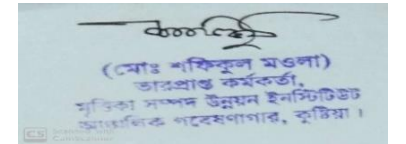 (মোঃ শফিকুল মওলা)
ভারপ্রাপ্ত কর্মকর্তা,
মৃত্তিকা সম্পদ উন্নয়ন ইনস্টিটিউট
আঞ্চলিক গবেষণাগার, কুষ্টিয়া ।
CS